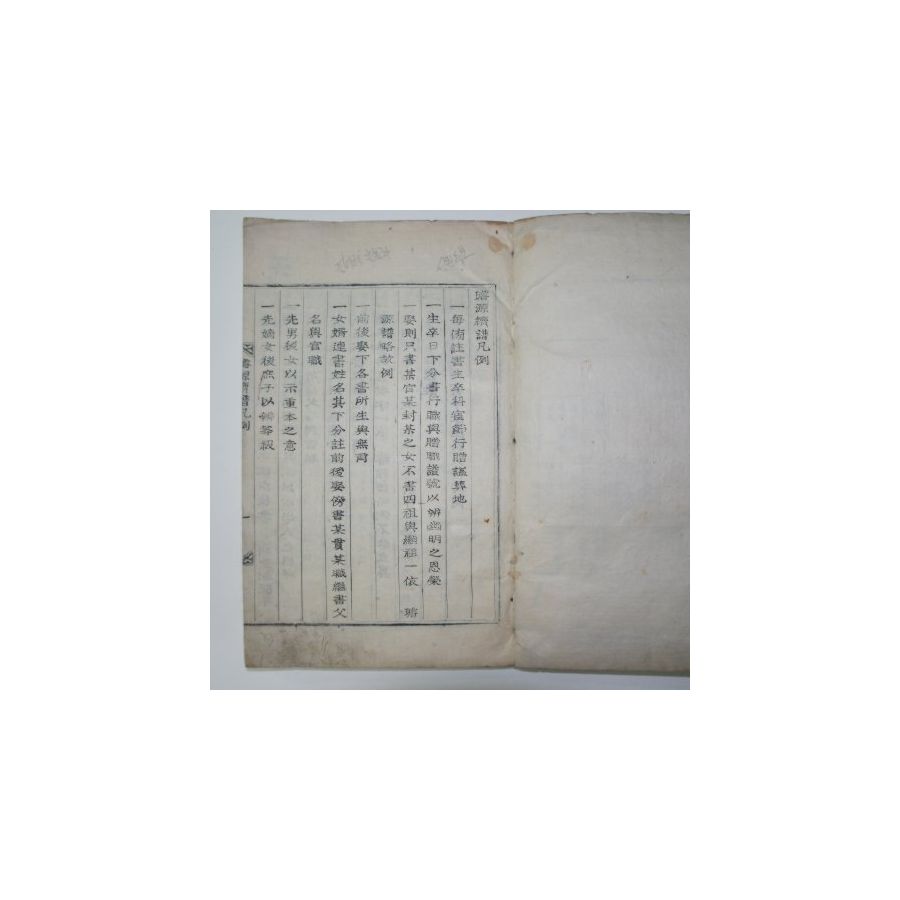 璿源續譜凡例
一每㑨註書生卒科宦節行贈諡葬地
一生卒日下分書行職與贈職諡號以辨幽明之恩榮
一娶則只書某官某封某之女不書四祖與繼祖一依 璿
源譜略故例
一前後娶下各書所生與無育
一女婿連書姓名其下分註前後娶傍書某貫某職繼書父
名與官職
一先男後女以示重本之意
一先嫡女後庶子以辨等級
璿源續譜凡例 一